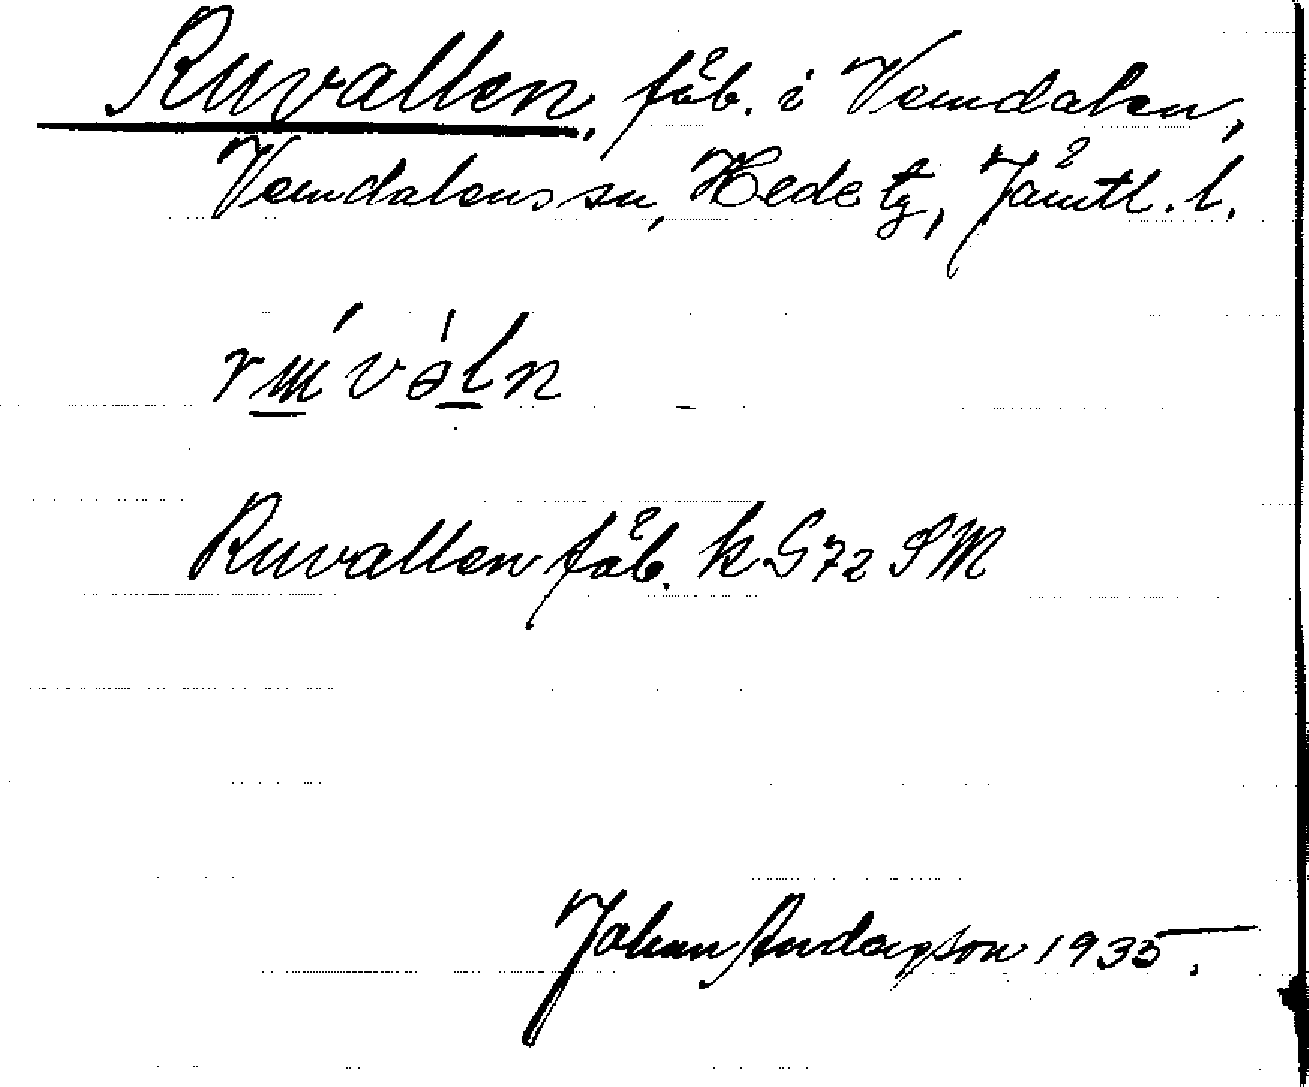 Ruvallen, fäb. i Vemdalen,
Vemdalens sn, Hede tg, Jämtl. l.
Ruvallen fäb. k G72 SM
Johan Anderson 1935.